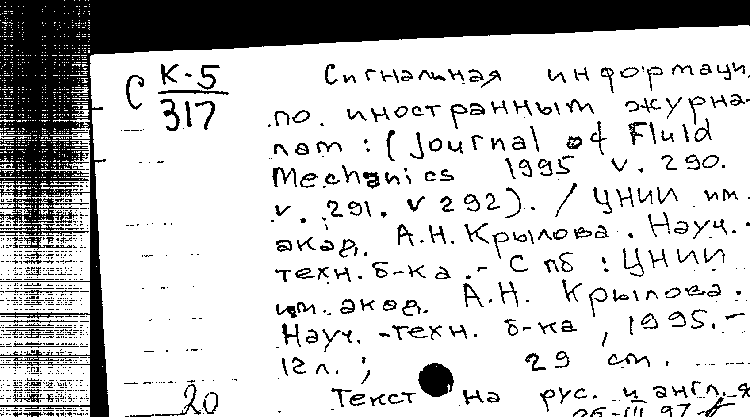 С К-5
317
Сигнальная информаци
по иностранным журна-
лам : (Journal of Fluid
Mechanics 1995 v. 290.
v. 291. v 292). / ЦНИИ им.
акад. А.Н. Крылова. Науч.-
техн. б-ка .- Спб : ЦНИИ
им. акад. А.Н. Крылова.
Науч. -техн. б-ка , 1995.-
12 л. ; 29 см.
20 Текст на рус. и англ. я
25-III 97